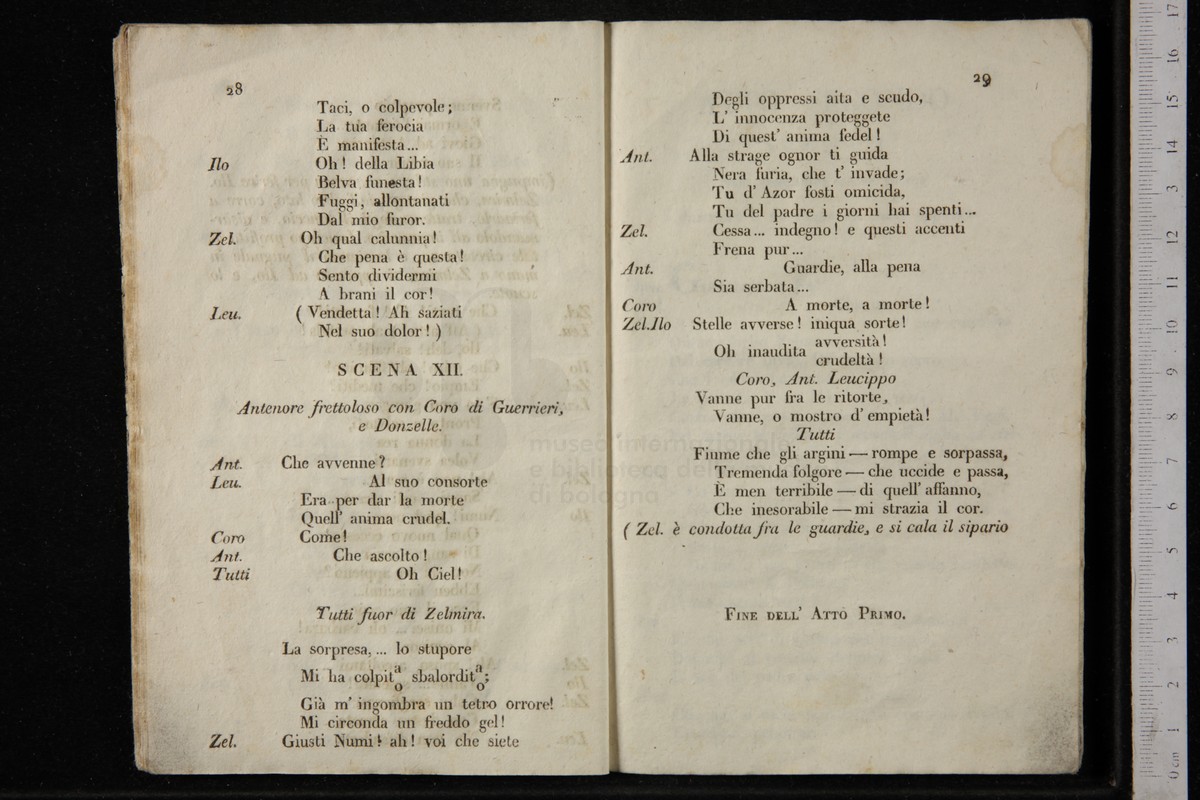 28
Taci, o colpevole;
La tua ferocia
È manifesta...
Ilo Oh! della Libia
Belva funesta!
Fuggi, allontanati
Dal mio furor.
Zel. Oh qual calunnia!
Che pena è questa!
Sento dividermi
A brani il cor!
Leu. ( Vendetta! Ah saziati
Nel suo dolor! )
SCENA XII.
Antenore frettoloso con Coro di Guerrieri,
e Donzelle.
Ant. Che avvenne?
Leu. Al suo consorte
Era per dar la morte
Quell' anima crudel.
Coro Come!
Ant. Che ascolto!
Tutti Oh Ciel!
Tutti fuor di Zelmira.
La sorpresa,... lo stupore
Mi ha colpit a/o sbalordit a/o;
Già m' ingombra un tetro orrore!
Mi circonda un freddo gel!
Zel. Giusti Numi! ah! voi che siete
29
Degli oppressi aita e scudo,
L' innocenza proteggete
Di quest' anima fedel!
Ant. Alla strage ognor ti guida
Nera furia, che t' invade;
Tu d' Azor fosti omicida,
Tu del padre i giorni hai spenti...
Zel. Cessa... indegno! e questi accenti
Frena pur...
Ant. Guardie, alla pena
Sia serbata...
Coro A morte, a morte!
Zel.Ilo Stelle avverse! iniqua sorte!
Oh inaudita avversità!
crudeltà!
Coro, Ant. Leucippo
Vanne pur fra le ritorte,
Vanne, o mostro d' empietà!
Tutti
Fiume che gli argini — rompe e sorpassa,
Tremenda folgore — che uccide e passa,
È men terribile — di quell' affanno,
Che inesorabile — mi strazia il cor.
( Zel. è condotta fra le guardie, e si cala il sipario
FINE DELL' ATTO PRIMO.
museo internazionale
e biblioteca della
di bologna
0 cm 1 2 3 4 5 6 7 8 9 10 11 12 13 14 15 16 17